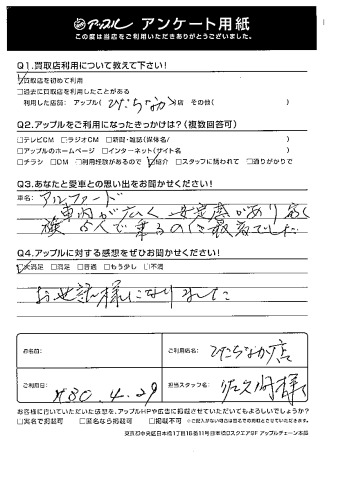 アップル アンケート用紙
この度は当店をご利用いただきありがとうございました。
Q1.買取店利用について教えて下さい!
☑買取店を初めて利用
□過去に買取店を利用したことがある
利用した店舗: アップル( ひたちなか )店 その他( )
Q2.アップルをご利用になったきっかけは?(複数回答可)
□テレビCM □ラジオCM □新聞・雑誌(媒体名/ )
□アップルのホームページ □インターネット(サイト名 )
□チラシ □DM □利用経験があるので ☑紹介 □スタッフに誘われて □通りがかりで
Q3.あなたと愛車との思い出をお聞かせください!
車名: アルファード
車内が広く 安定感があり
人で乗るのに最高でした
Q4.アップルに対する感想をぜひお聞かせください!
☑大満足 □満足 □普通 □もう少し □不満
お世話様になりました
お名前:
ご利用店名: ひたちなか店
ご利用日: H30.4.29
担当スタッフ名: 佐久間様
お客様に書いていただいた感想を、アップルHPや広告に掲載させていただいてもよろしいでしょうか?
□実名で掲載可 □匿名なら掲載可 □掲載不可
東京都中央区日本橋1丁目16番11号日本橋Dスクエア9F アップルチェーン本部